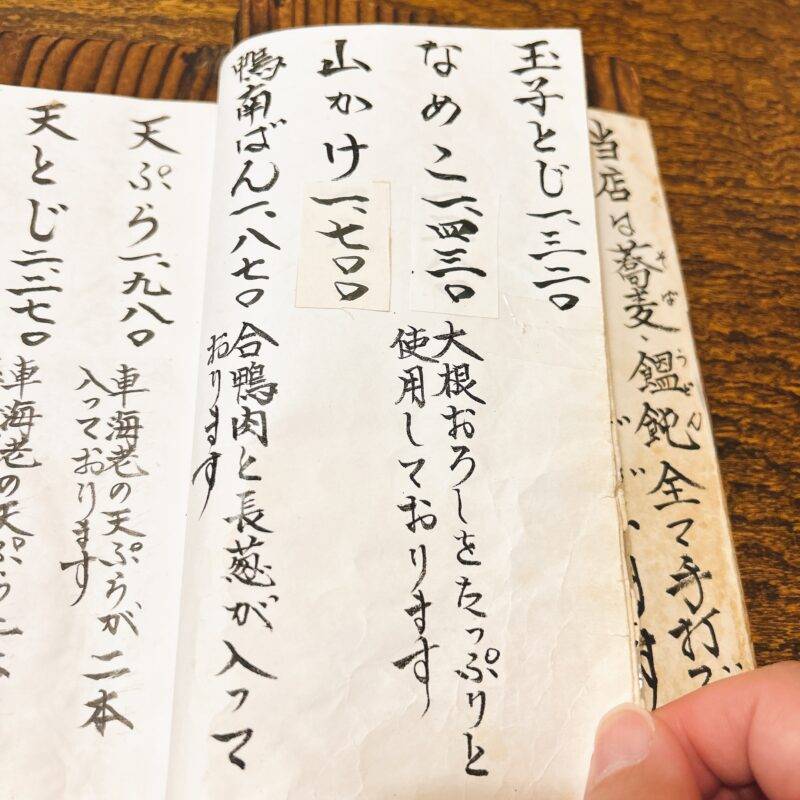 当店は蕎麦、饂飩全て手打で
そば
うどん
玉子とじ一、三二〇
なめこ一、四三〇
大根おろしをたっぷりと
使用しております
山かけ一、七〇〇
鴨南ばん一、八七〇
合鴨肉と長葱が入って
おります
天ぷら一、九八〇
車海老の天ぷらが二本
入っております
天とじ二、二七〇
車海老の天ぷら二本